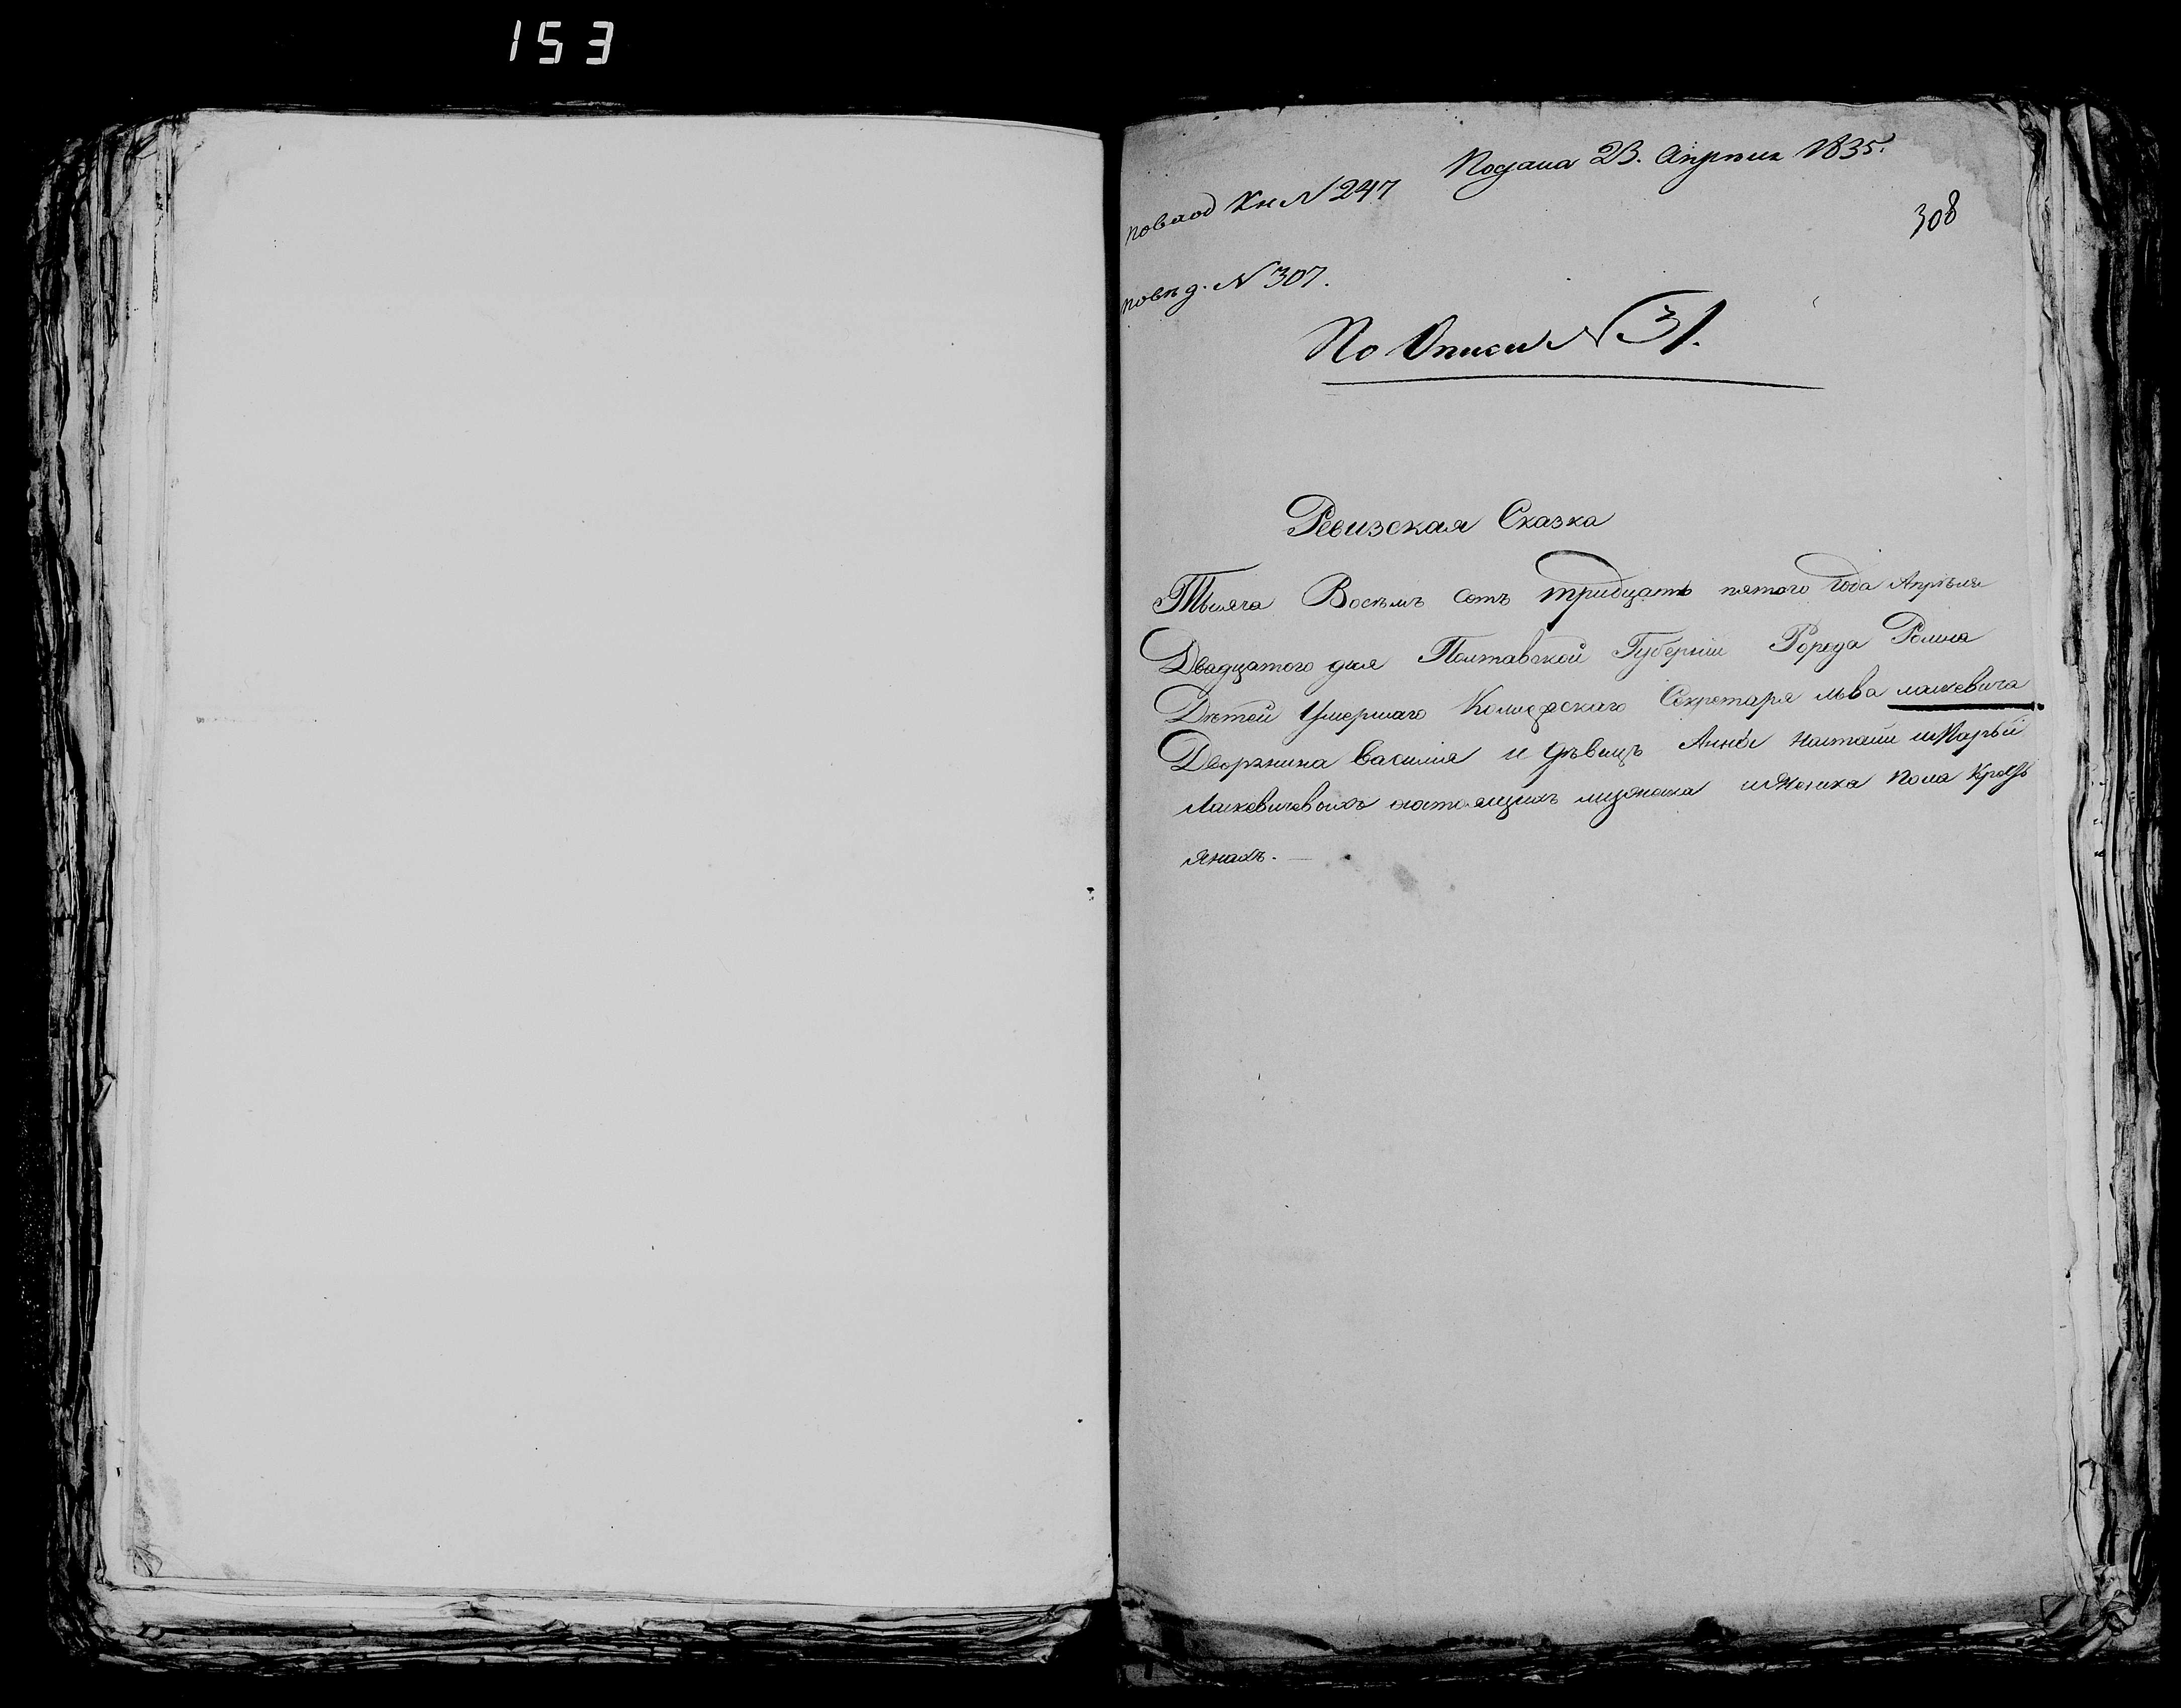 153
Подана 23. Апреля 1835.
по вход Кн N 247
308
по вѣд. N 307.
По Описи N 31.
Ревизская Сказка
Тысяча Восѣмъ сотъ тридцать пятого года Апрѣля
Двадцатого дня Полтавской Губерніи Города Ромна
Дѣтей Умершаго Колежскаго Секретаря льва малкевича
Дворянина василия и дѣвицъ Анны наталіи и Марьи
Малкевичевыхъ состоящихъ мужеска и женска пола Крестъ
янахъ.